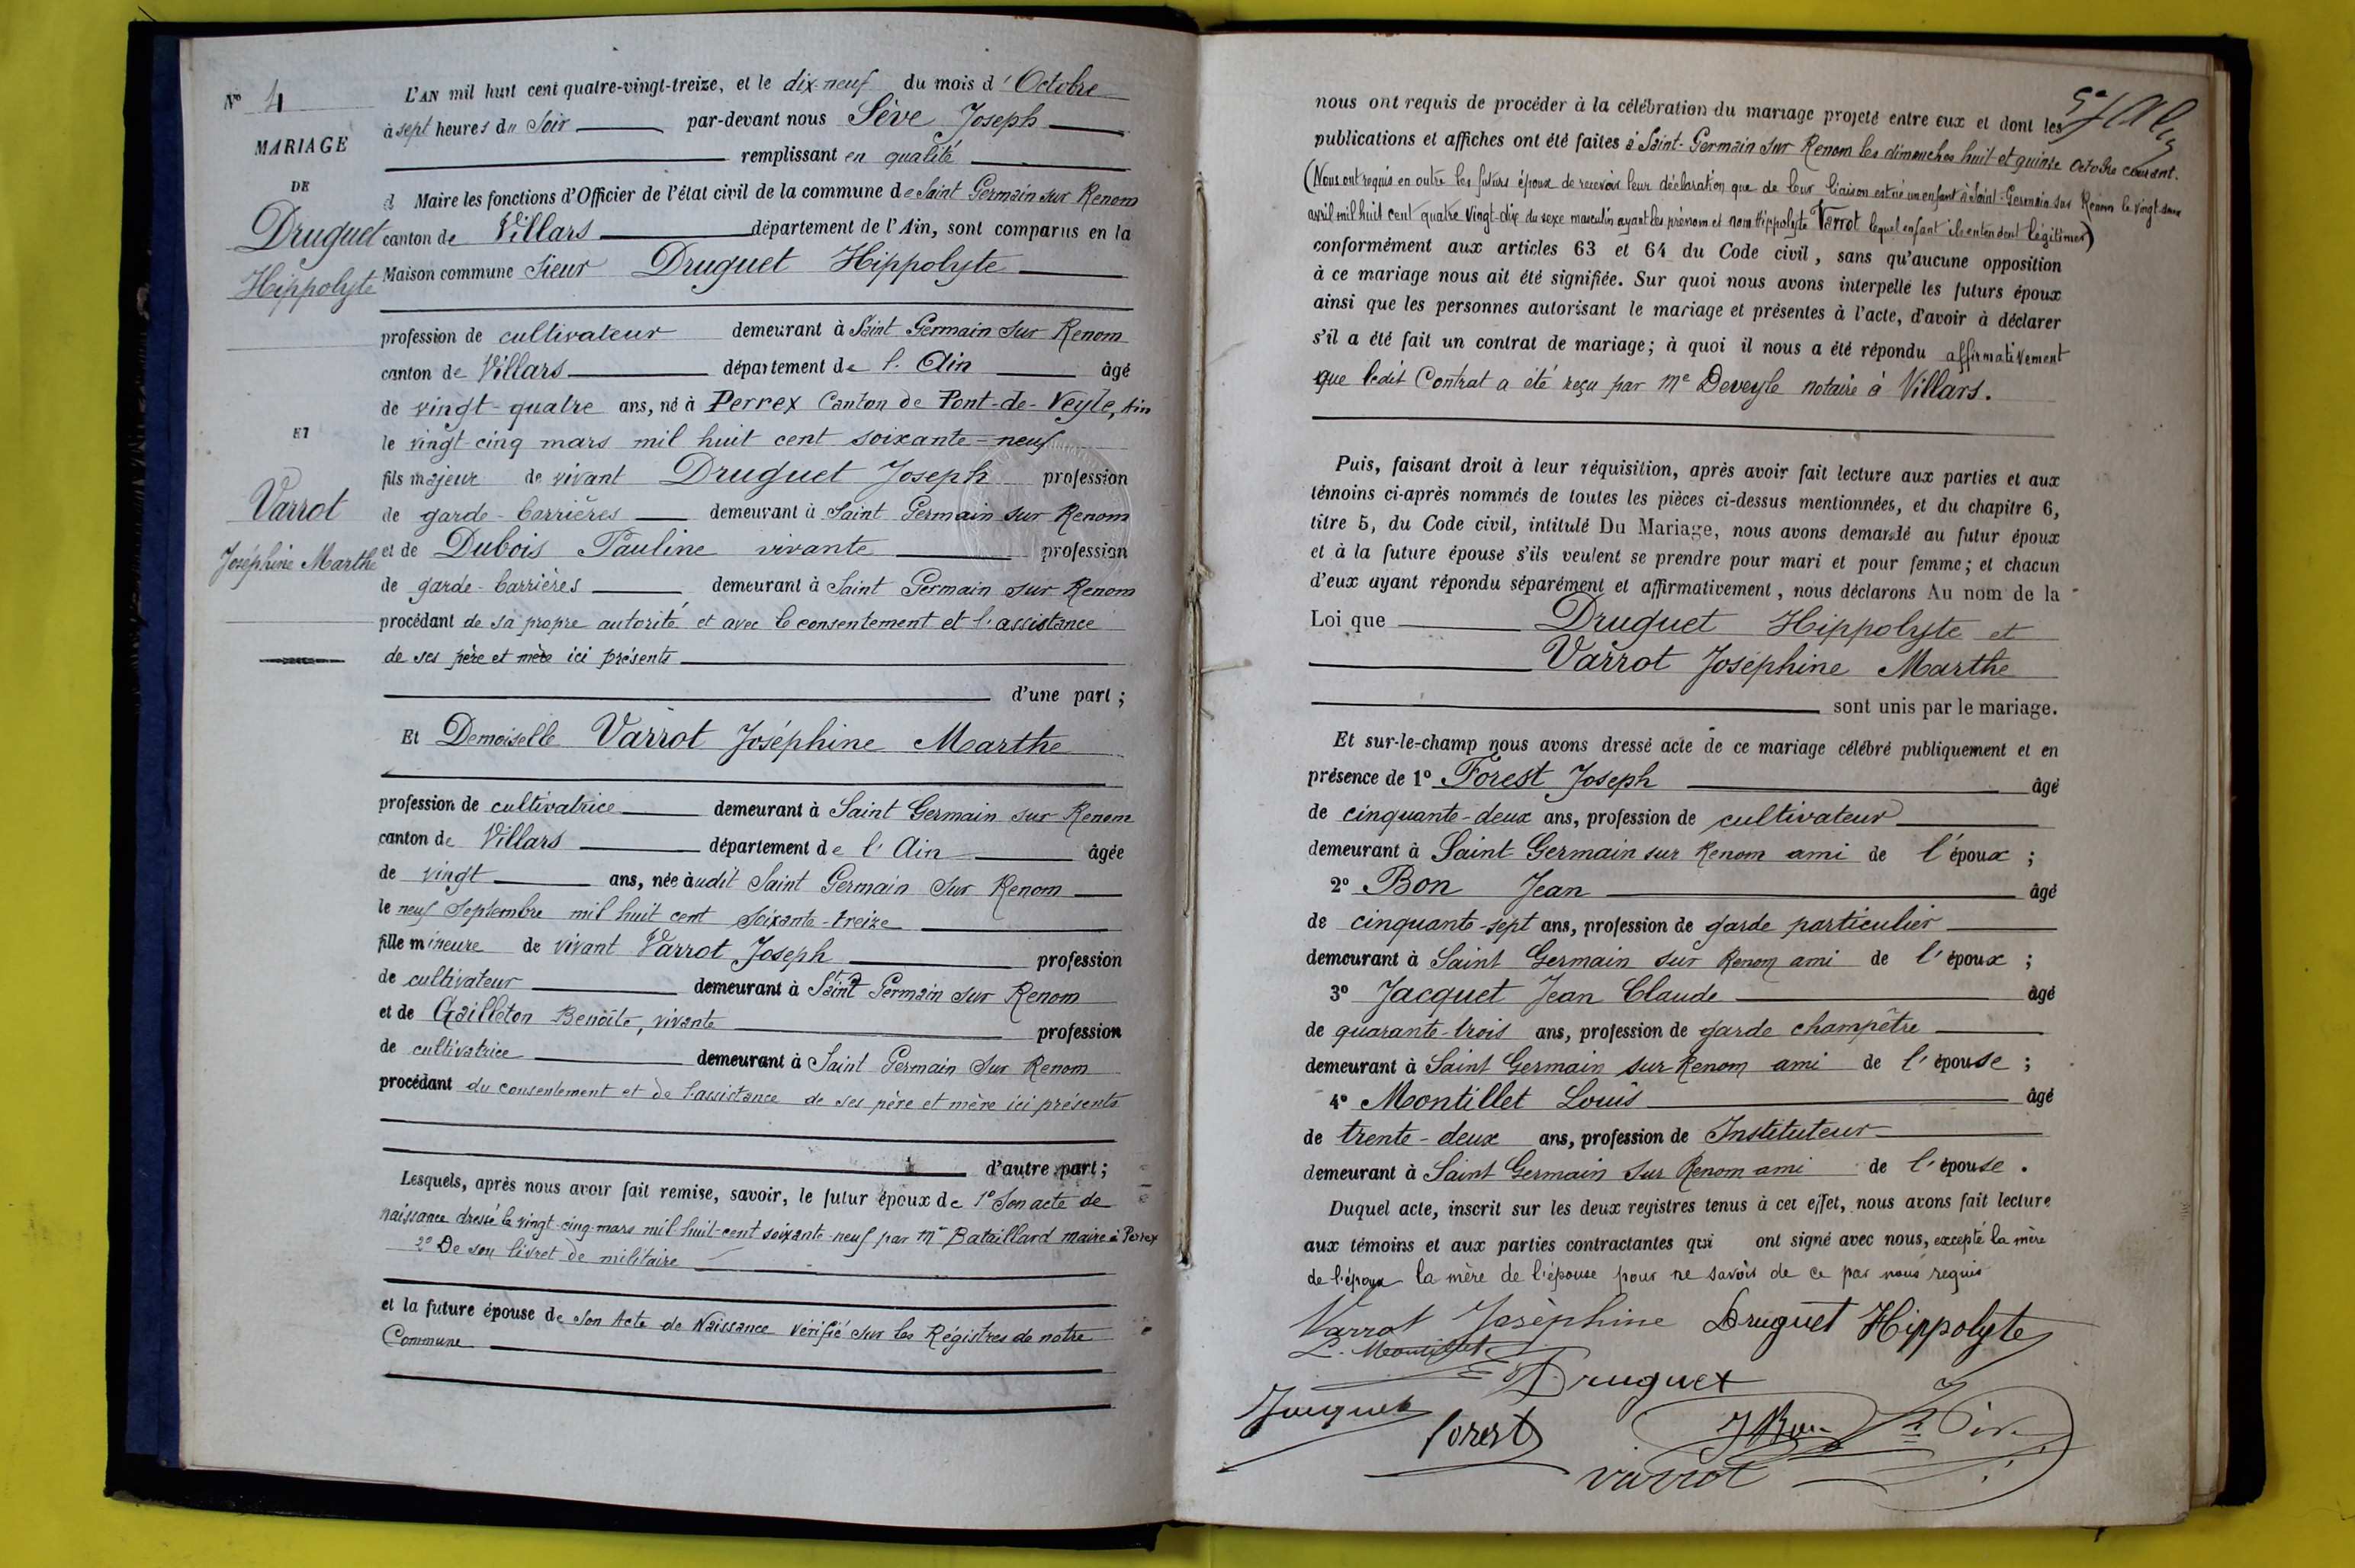 N° 4
MARIAGE
DE
Druguet
Hippolyte
ET
Varrot
Joséphine Marthe
L'AN mil huit cent quatre-vingt-treize, et le dix-neuf du mois d'Octobre
à sept heures du Soir par-devant nous Sève Joseph
remplissant en qualité
d Maire les fonctions d'Officier de l'état civil de la commune de Saint Germain sur Renom
canton de Villars département de l'Ain, sont comparus en la
Maison commune Sieur Druguet Hippolyte
profession de cultivateur demeurant à Saint Germain sur Renom
canton de Villars département de l'Ain âgé
de vingt-quatre ans, né à Perrex Canton de Pont-de-Veyle, Ain
le vingt-cinq mars mil huit cent soixante-neuf
fils majeur de vivant Druguet Joseph profession
de garde-barrières demeurant à Saint Germain sur Renom
et de Dubois Pauline vivante profession
de garde-barrières demeurant à Saint Germain sur Renom
procédant de sa propre autorité et avec le consentement et l'assistance
de ses père et mère ici présents
d'une part ;
Et Demoiselle Varrot Joséphine Marthe
profession de cultivatrice demeurant à Saint Germain sur Renom
canton de Villars département de l'Ain âgée
de vingt ans, née àudit Saint Germain sur Renom
le neuf Septembre mil huit cent soixante-treize
fille mineure de vivant Varrot Joseph profession
de cultivateur demeurant à Saint Germain sur Renom
et de Gailleton Benoîte, vivante profession
de cultivatrice demeurant à Saint Germain sur Renom
procédant du consentement et de l'assistance de ses père et mère ici présents
d'autre part ;
Lesquels, après nous avoir fait remise, savoir, le futur époux de 1° Son acte de
naissance dressé le vingt-cinq mars mil huit-cent soixante-neuf par Mr Bataillard maire à Perrex
2° De son livret de militaire
et la future épouse de son Acte de Naissance vérifié sur les Régistres de notre
Commune
nous ont requis de procéder à la célébration du mariage projeté entre eux et dont les
publications et affiches ont été faites à Saint-Germain sur Renom les dimanches huit et quinze Octobre courant.
(Nous ont requis en outre les futurs époux de recevoir leur déclaration que de leur liaison est né un enfant à Saint-Germain sur Renom le vingt-deux
avril mil huit cent quatre vingt-dix du sexe masculin ayant les prénom et nom Hippolyte Varrot lequel enfant ils entendent légitimer)
conformément aux articles 63 et 64 du Code civil, sans qu'aucune opposition
à ce mariage nous ait été signifiée. Sur quoi nous avons interpellé les futurs époux
ainsi que les personnes autorisant le mariage et présentes à l'acte, d'avoir à déclarer
s'il a été fait un contrat de mariage; à quoi il nous a été répondu affirmativement
que ledit Contrat a été reçu par Me Deveyle notaire à Villars.
Puis, faisant droit à leur réquisition, après avoir fait lecture aux parties et aux
témoins ci-après nommés de toutes les pièces ci-dessus mentionnées, et du chapitre 6,
titre 5, du Code civil, intitulé Du Mariage, nous avons demandé au futur époux
et à la future épouse s'ils veulent se prendre pour mari et pour femme; et chacun
d'eux ayant répondu séparément et affirmativement, nous déclarons Au nom de la
Loi que Druguet Hippolyte et
Varrot Joséphine Marthe
sont unis par le mariage.
Et sur-le-champ nous avons dressé acte de ce mariage célébré publiquement et en
présence de 1° Forest Joseph âgé
de cinquante-deux ans, profession de cultivateur
demeurant à Saint Germain sur Renom ami de l'époux ;
2° Bon Jean âgé
de cinquante-sept ans, profession de garde particulier
demeurant à Saint Germain sur Renom ami de l'époux ;
3° Jacquet Jean Claude âgé
de quarante-trois ans, profession de garde champêtre
demeurant à Saint Germain sur Renom ami de l'épouse ;
4° Montillet Louis âgé
de trente-deux ans, profession de Instituteur
demeurant à Saint Germain sur Renom ami de l'épouse.
Duquel acte, inscrit sur les deux registres tenus à cet effet, nous avons fait lecture
aux témoins et aux parties contractantes qui ont signé avec nous, excepté la mère
de l'époux la mère de l'épouse pour ne savoir de ce par nous requis
Varrot Joséphine Druguet Hippolyte
L. Montillet
Druguet
Jacquet
forest
J Bon
varrot